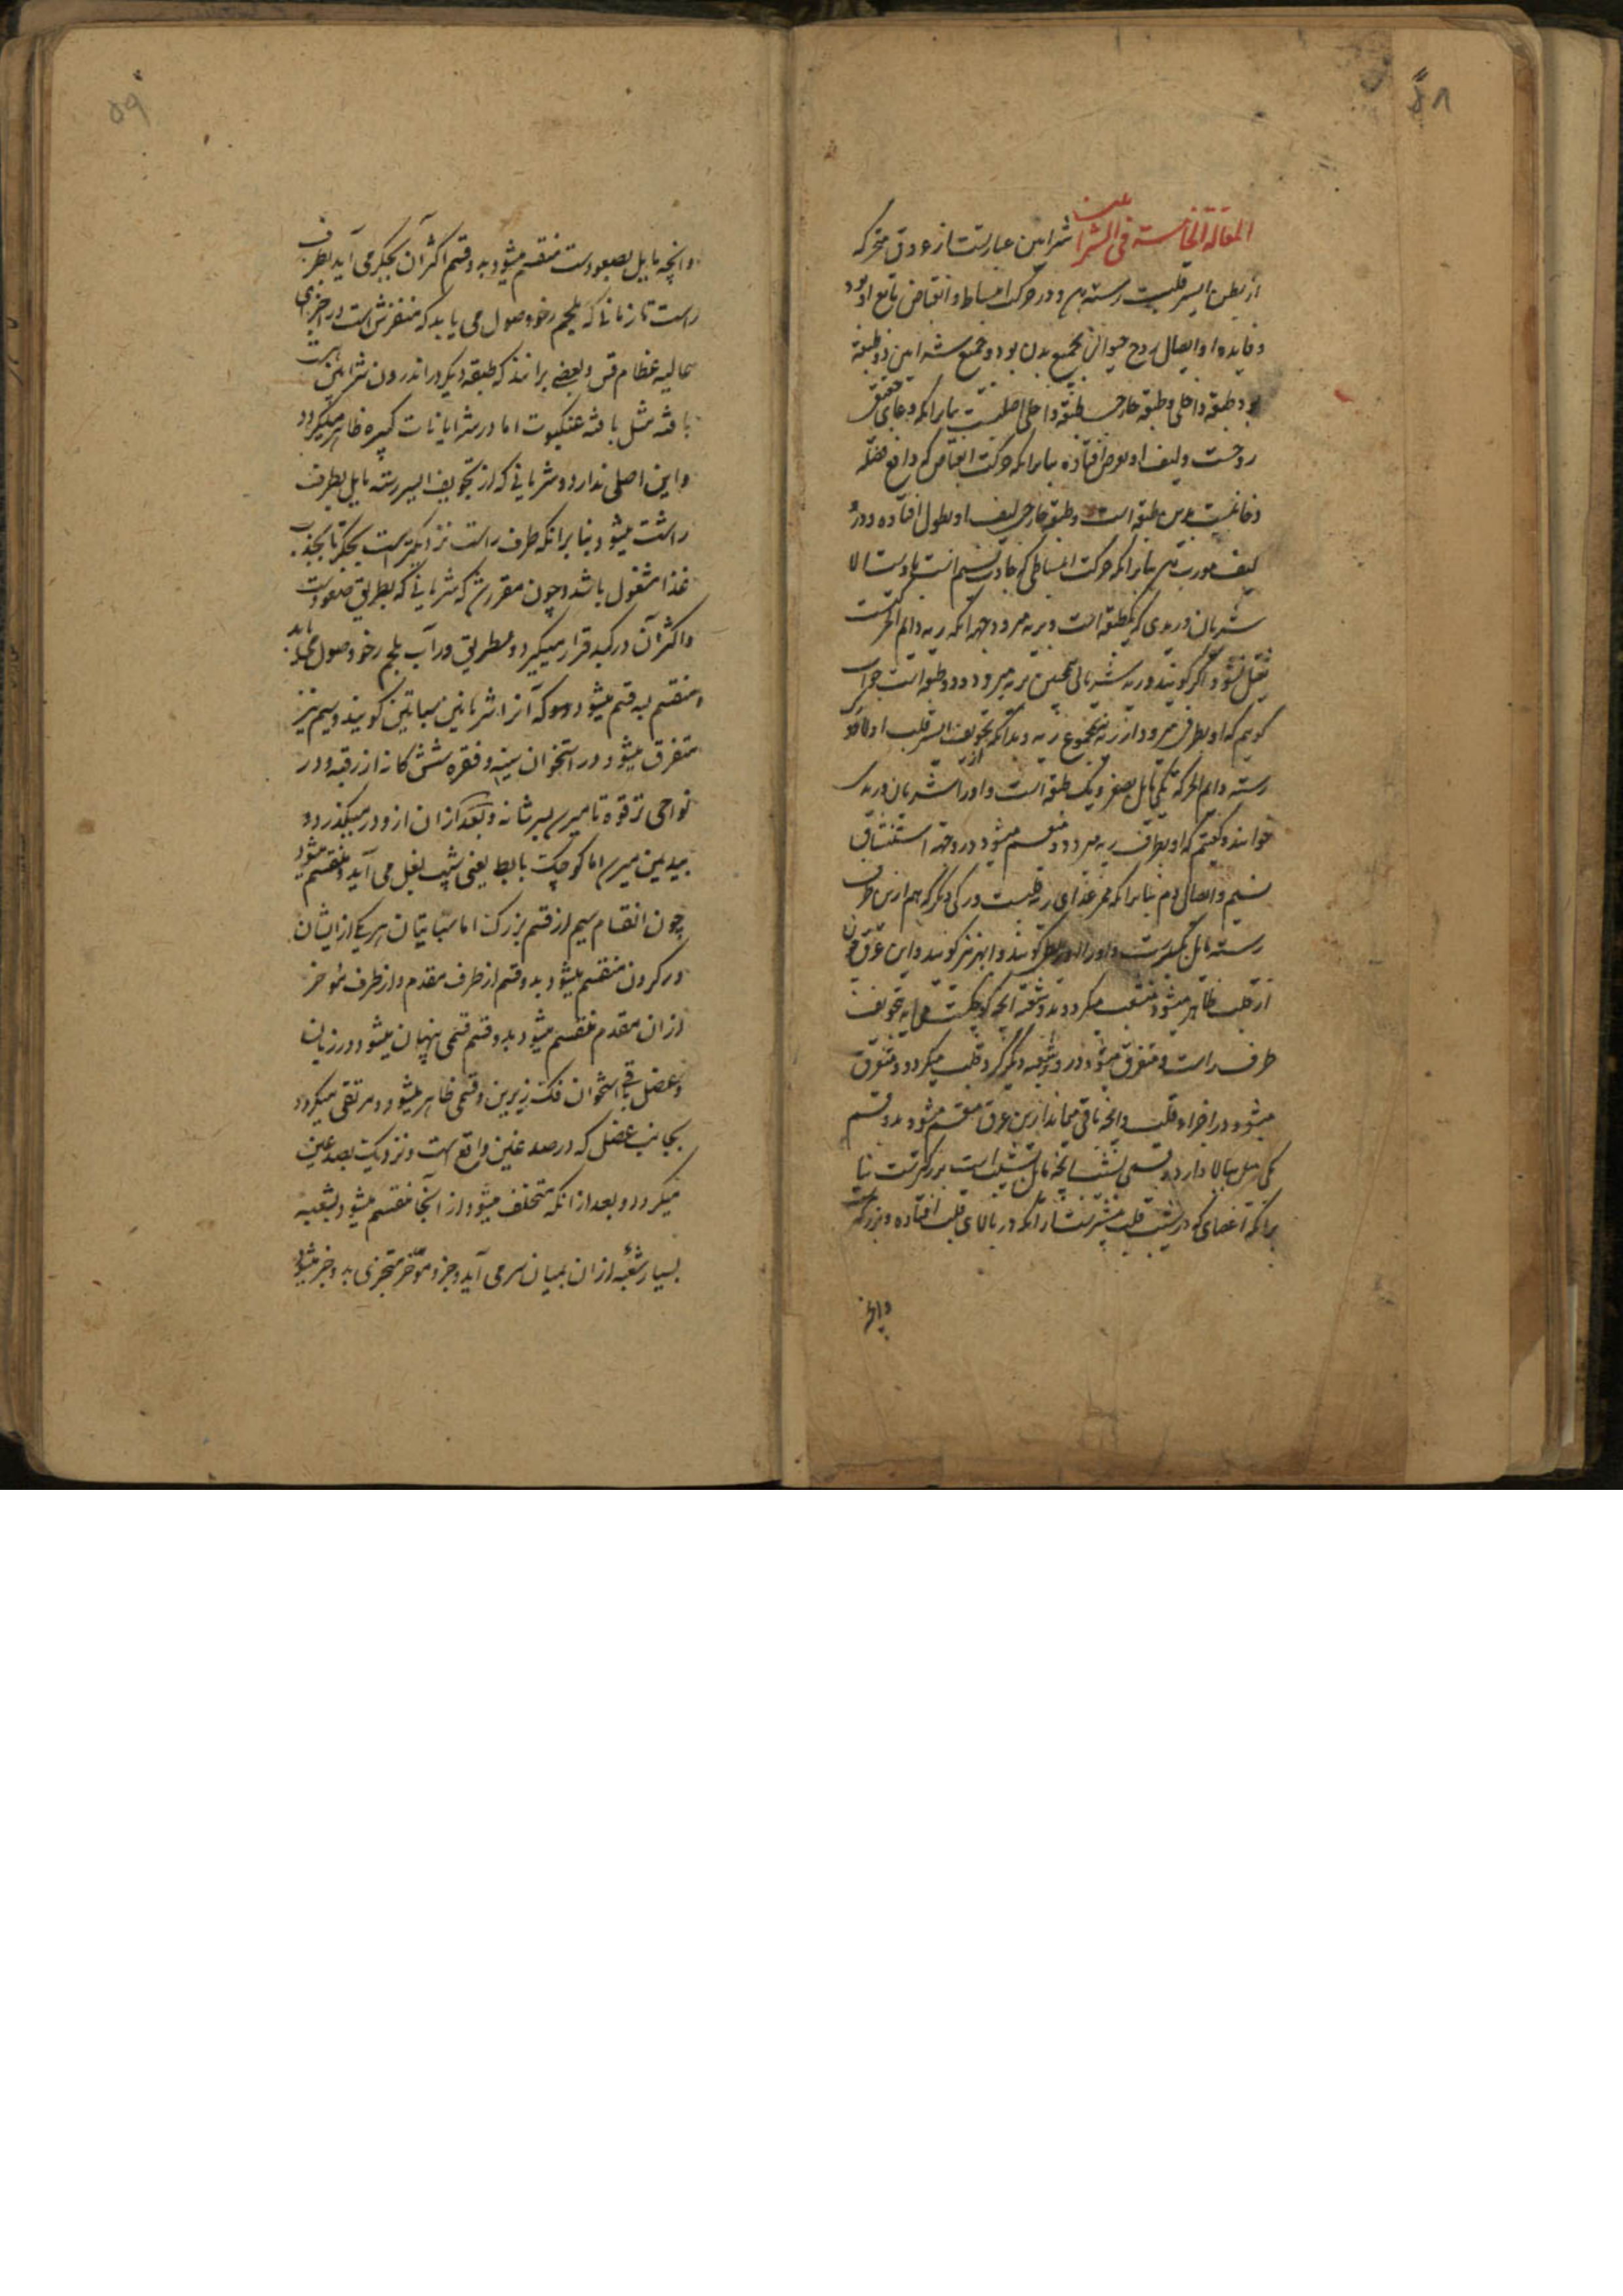 ۵۸
المقالة الخامسة فی الشراعین شرایین عبارتست از عروق متحرکه
از بطن ایسر قلب رسته و در حرکت انبساط و انقباض تابع او بود
و فایده او ایصال روح حیوانی بجمیع بدن بود و جمیع شرایین ذو طبقه
بود طبقه داخلی و طبقه خارجی طبقه داخلی اصلبست بنابرانکه وعای حقیقی
روحست و لیف او بعرض افتاده بنابرانکه حرکت انقباض که دافع فضله
دخانیست بدین طبقه است و طبقه خارجی لیف او بطول افتاده و درو
لیف مورب بنابرانکه حرکت انبساطی که جاذب نسیم است بدوست الا
شریان وریدی که یکطبقه است و بریه میرود جهه انکه ریه دایم الحرکتست
ثقیل نشود و اگر گویند در ریه شریانی همچنین بریه میرود و دو طبقه است جواب
گویم که او بطرفی میرود از ریه نه بمجموع ریه و بدانکه از تجویف ایسر قلب اولا دو
رسته دایم الحرکة یکی مایل بصغر و یک طبقه است و او را شریان وریدی
خوانند و گفتیم که او بطرف ریه میرود و منقسم میشود در و جهة استنشاق
نسیم و ایصال دم بنابرانکه ممر غذای ریه قلبست و رکی دیگر که هم ازین طرف
رسته مایل بکبرست و او را اورطی گویند و ابهر نیز گویند و این عرق چون
از قلب ظاهر میشود منشعب میکردد بدو شعبه انچه کوچکست میاید بتجویف
طرف راست و متفرق میشود درو و شعبه دیگر گرد قلب میکردد و متفرق
میشود در اجزاء قلب و انچه باقی میماند ازین عرق منقسم میشود بدو قسم
یکی میل ببالا دارد و قسمی بنشیب انچه مایل بنشیب است بزرکترست بنا
برانکه اعضای که در نشیب قلب بیشترست از انکه در بالای قلب افتاده و بزرگتر
وانچه
۵۹
وانچه مایل بصعودست منقسم میشود بدو قسم اکثر آن بجگر می آید بطرف
راست تا زمانا که بلحم رخو وصول می یابد که منفرش است در اجزای
عالیه عظام قس و بعضی برانند که طبقه دیگر در اندرون شرایین هست
بافته مثل بافته عنکبوت اما در شرایانات کبیره ظاهر میکردد
و این اصلی ندارد و شریانی که از تجویف ایسر رسته مایل بطرف
راست میشود بنا برانکه طرف راست نزدیکترست بجگر تا بجذب
غذا مشغول باشد و چون مقررشد که شریانی که بطریق صعودست
و اکثر آن در کبد قرار میگیرد و بطریق وراب بلحم رخو وصول میابد
منقسم بسه قسم میشود دو که آنرا شریانین سباتین گویند و سیم نیز
متفرق میشود در استخوان سینه و فقره شش کانه از رقبه و در
نواحی ترقوه تا میرسد بسر شانه و بعد از ان ازو در میگذرد و
بیدین میرسد اما کوچکتر بابط یعنی بشیب بغل می آید و منقسم میشود
چون انقسام سیم از قسم بزرک اما سباتیان هر یک از ایشان
در کردن منقسم میشود بدو قسم از طرف مقدم و از طرف مؤخر
از ان مقدم منقسم میشود بدو قسم قسمی پنهان میشود در زبان
و عضل باقی استخوان فک زیرین و قسمی ظاهر میشود و مرتقی میکردد
بجانب عضل که در صدغین واقع است و نزدیک بصدغین
میکردد و بعد از انکه متخلف میشود از آنجا منقسم میشود بشعبه
بسیار شعبه از ان بمیان سر می آید و جزو مؤخر متجزی بدو جزو میشود